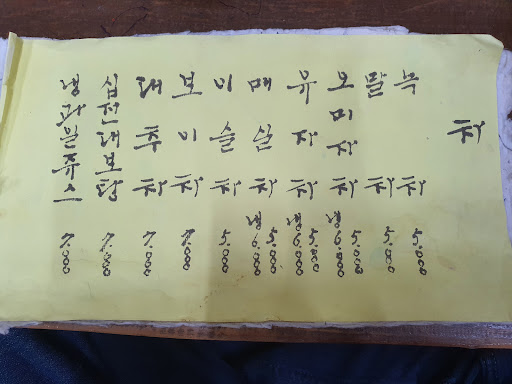 차
녹차 5.000
말차 5.000
오미자차 5.000
냉 6.000
유자차 5.000
냉 6.000
매실차 5.000
냉 6.000
이슬차 5.000
보이차 7.000
대추차 7.000
십전대보탕 7.000
냉과일쥬스 7.000